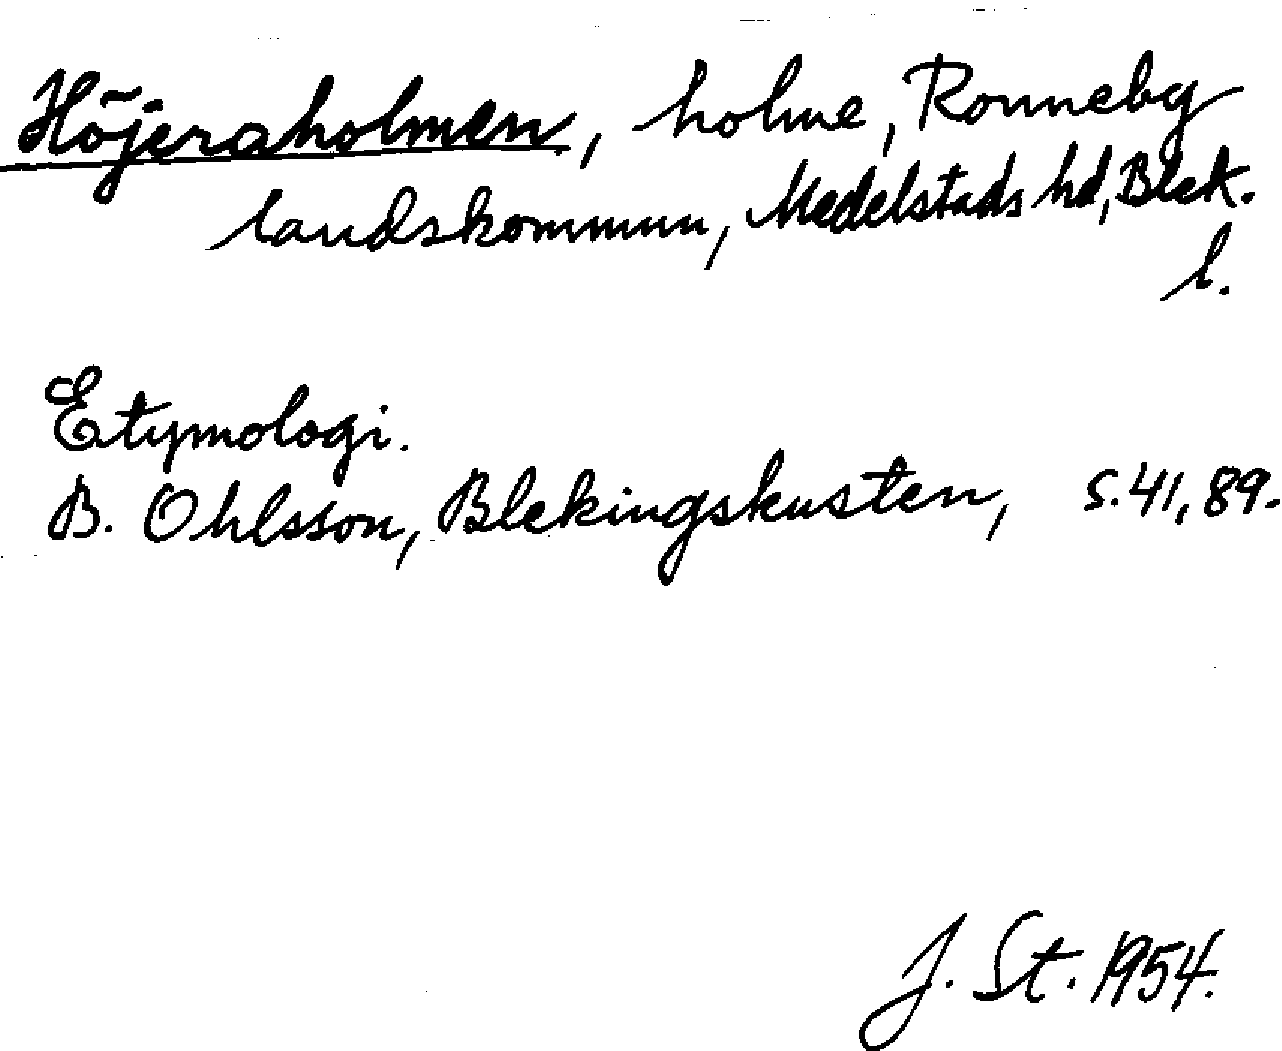 Höjeraholmen, holme, Ronneby
landskommun, Medelstads hd, Blek.
l.
Etymologi.
B. Ohlsson, Blekingskusten, s. 41, 89.
J. St. 1954.